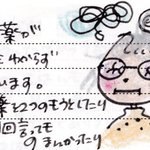 薬が
わからず
います。
薬を2つのもうとしたり
回言っても
のまんかったり